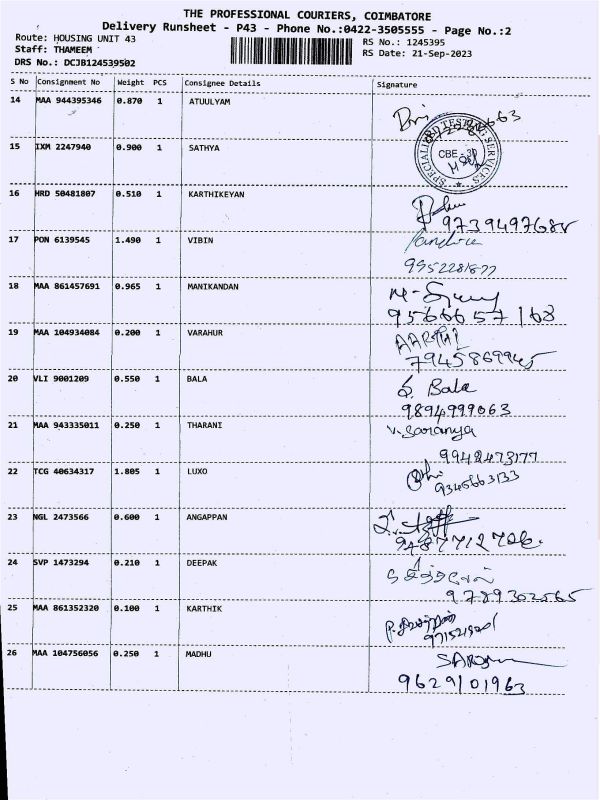 THE PROFESSIONAL COURIERS, COIMBATORE
Delivery Runsheet - P43 - Phone No.:0422-3505555 - Page No.:2
Route: HOUSING UNIT 43
RS No.: 1245395
Staff: THAMEEM
RS Date: 21-Sep-2023
DRS No.: DCJB124539502
S No Consignment No Weight PCS Consignee Details Signature
14 MAA 944395346 0.870 1 ATUULYAM
15 IXM 2247940 0.900 1 SATHYA
SPECIALISED TESTING SERVICES
CBE - 30
16 HRD 50481807 0.510 1 KARTHIKEYAN
17 PON 6139545 1.490 1 VIBIN
18 MAA 861457691 0.965 1 MANIKANDAN
9566657168
19 MAA 104934084 0.200 1 VARAHUR
7945869945
20 VLI 9001209 0.550 1 BALA
S. Bala
9894999063
21 MAA 943335011 0.250 1 THARANI
V. Saranya
9948473177
22 TCG 40634317 1.805 1 LUXO
9345663133
23 NGL 2473566 0.600 1 ANGAPPAN
9487712706.
24 SVP 1473294 0.210 1 DEEPAK
9789302565
25 MAA 861352320 0.100 1 KARTHIK
26 MAA 104756056 0.250 1 MADHU
9629101963